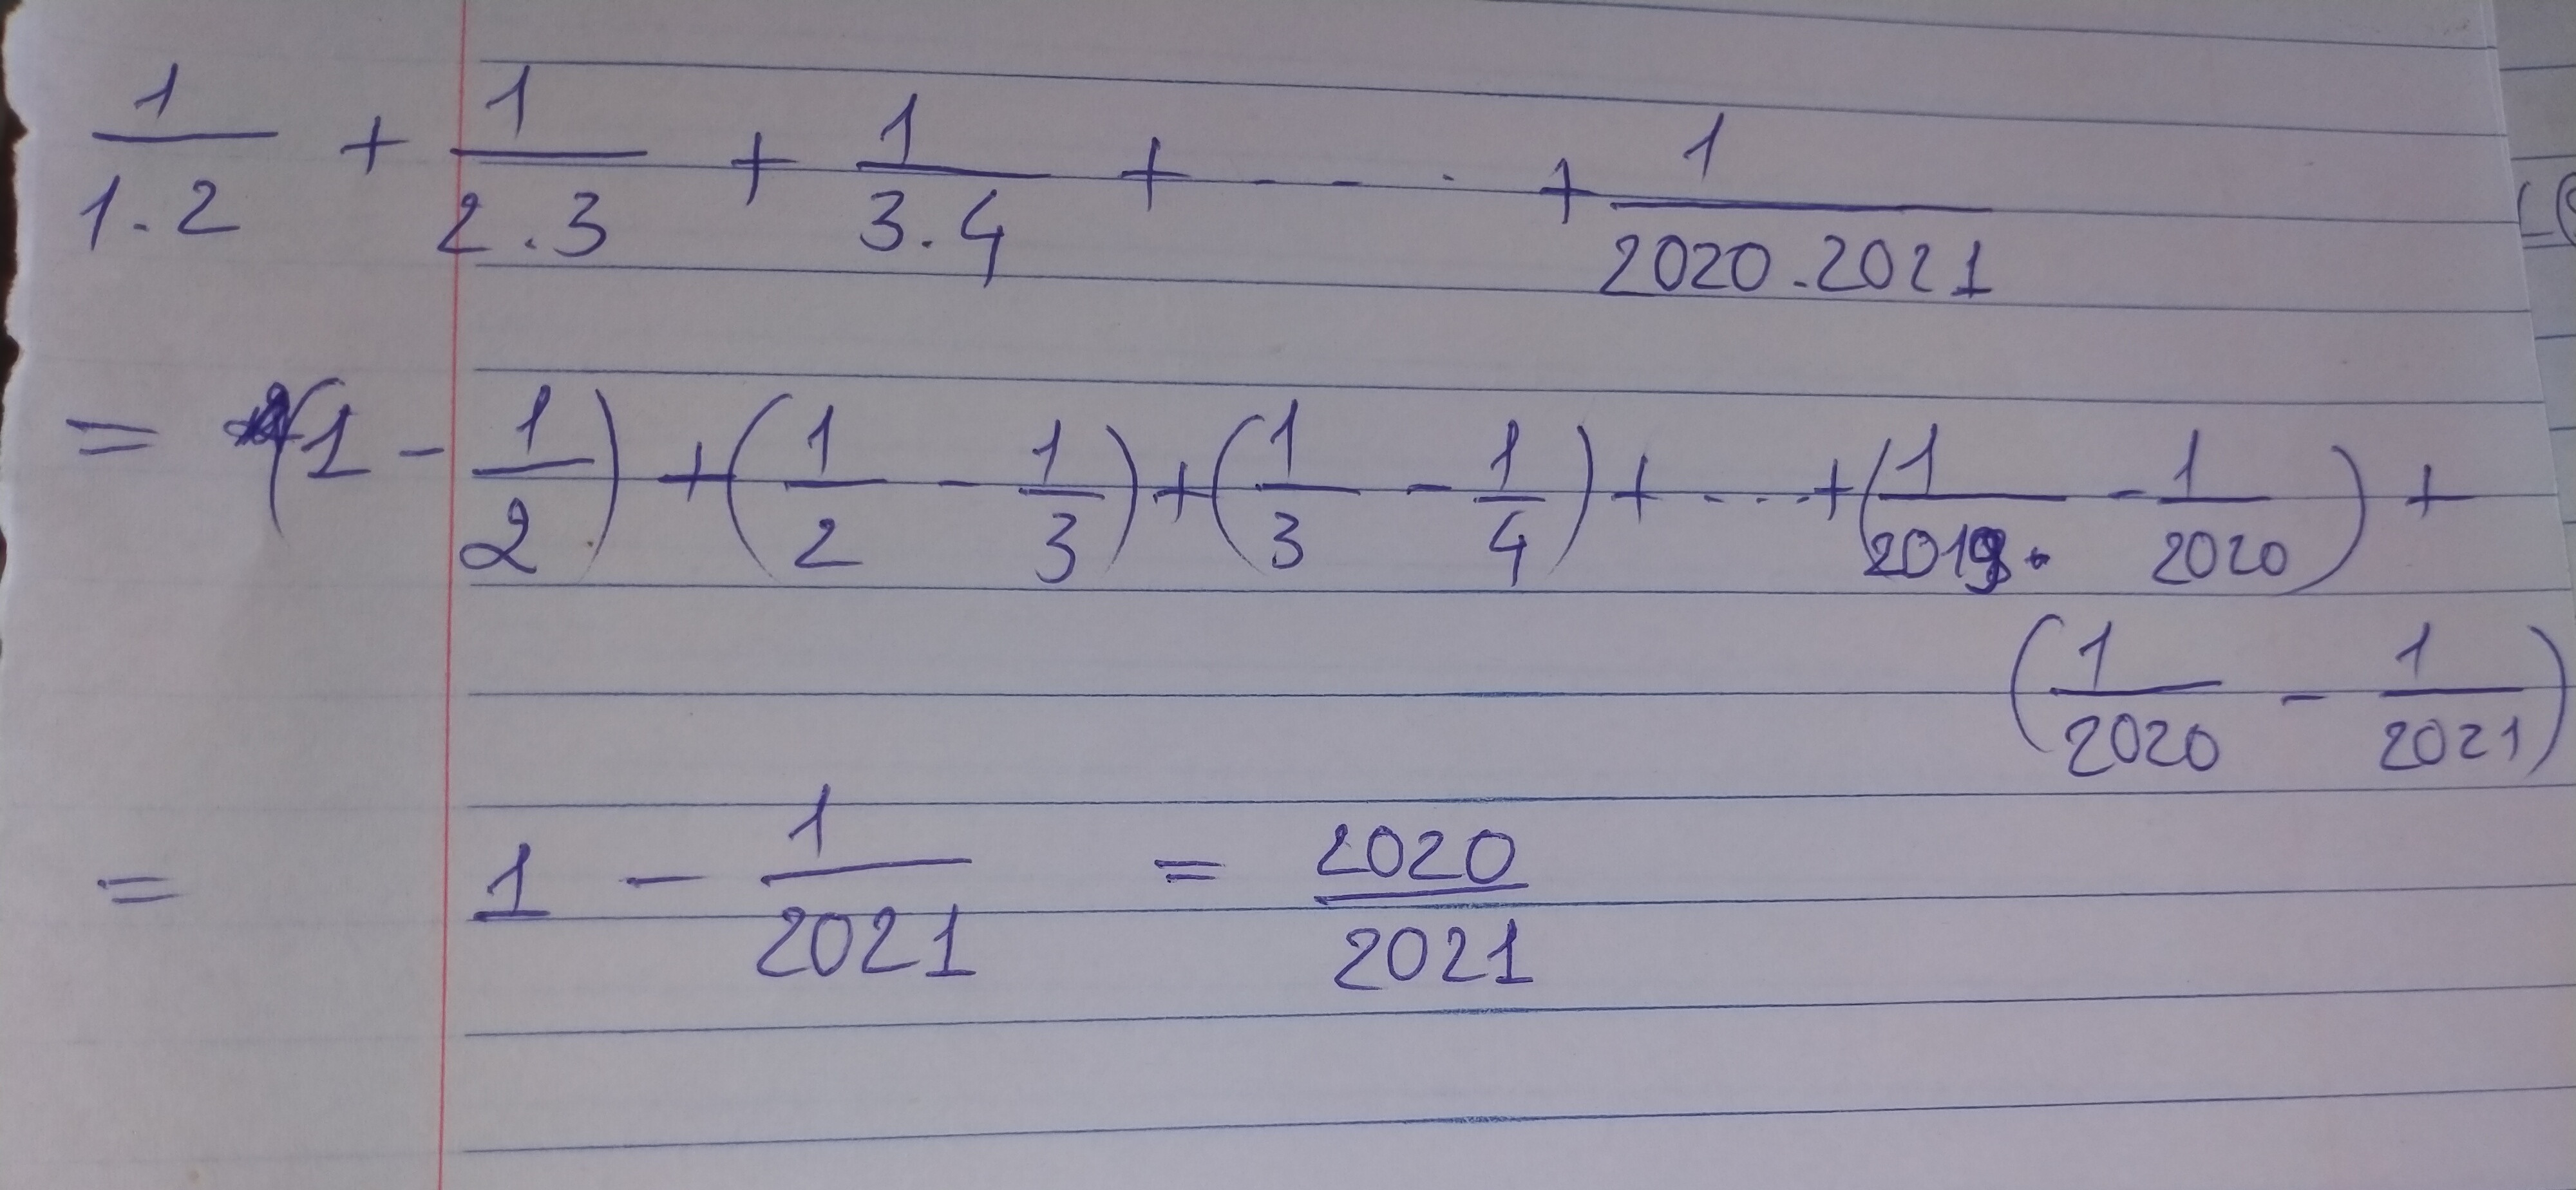 1/1.2 + 1/2.3 + 1/3.4 + - - - . + 1/2020.2021
= (1 - 1/2) + (1/2 - 1/3) + (1/3 - 1/4) + - - - + (1/2019 - 1/2020) +
(1/2020 - 1/2021)
= 1 - 1/2021 = 2020/2021